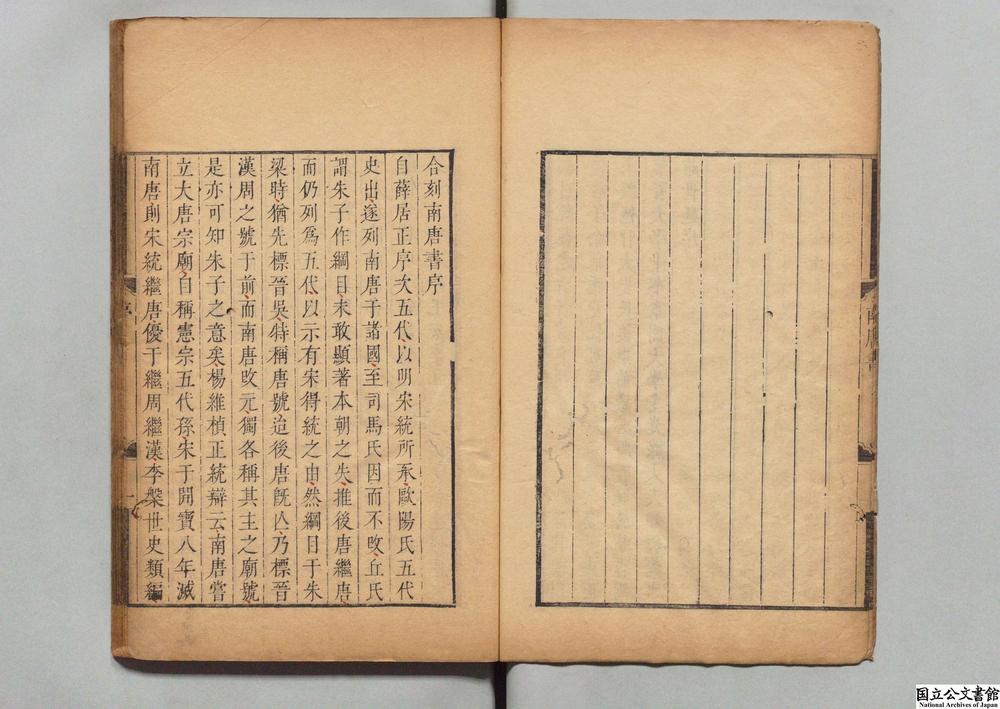 合刻南唐書序
自薛居正序次五代以明宋統所承歐陽氏五代
史出遂列南唐于諸國至司馬氏因而不攺丘氏
謂朱子作綱目未敢顯著本朝之失推後唐繼唐
而仍列爲五代以示有宋得統之由然綱目于朱
梁時猶先標晉吳特稱唐號迨後唐旣亾乃標晉
漢周之號于前而南唐攺元獨各稱其主之廟號
是亦可知朱子之意矣楊維楨正統辯云南唐嘗
立大唐宗廟自稱憲宗五代孫宋于開寶八年滅
南唐則宋統繼唐優于繼周繼漢李槃世史類編
序
一
南唐書
国立公文書館
National Archives of Japan